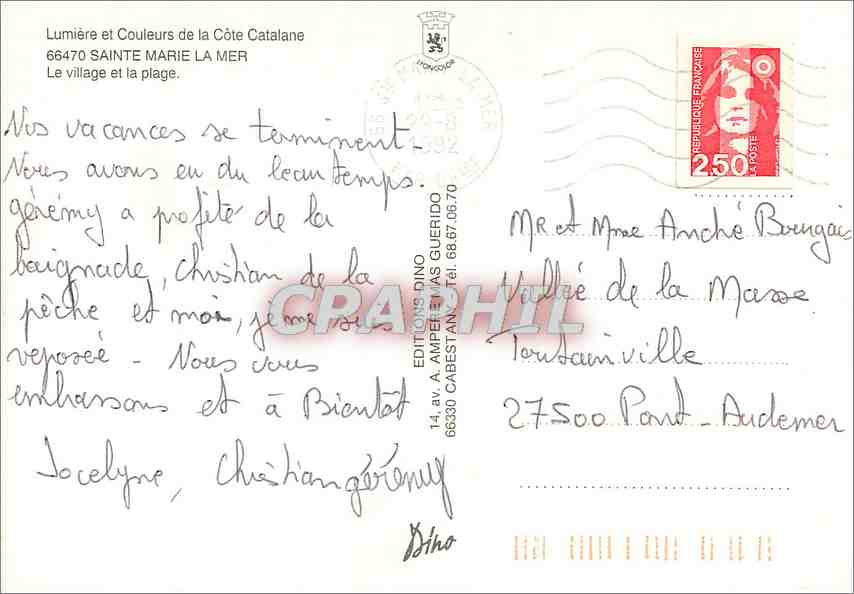 Lumière et Couleurs de la Côte Catalane
66470 SAINTE MARIE LA MER
Le village et la plage.
LYONCOLOR
Nos vacances se terminent.
Nous avons eu du beau temps.
gérémy a profité de la
baignade, Christian de la
pêche et moi, je me suis
reposée - Nous vous
embrassons et à Bientôt
Jocelyne, Christian gérémy
Dino
EDITIONS DINO
14, av. A. AMPERE MAS GUERIDO
66330 CABESTANY Tél. 68.67.06.70
CPAPHIL
66 STE MARIE LA MER
1992
REPUBLIQUE FRANÇAISE
2,50
LA POSTE
Mr et Mme André
Vallée de la Masse
Toutainville
27500 Pont-Audemer